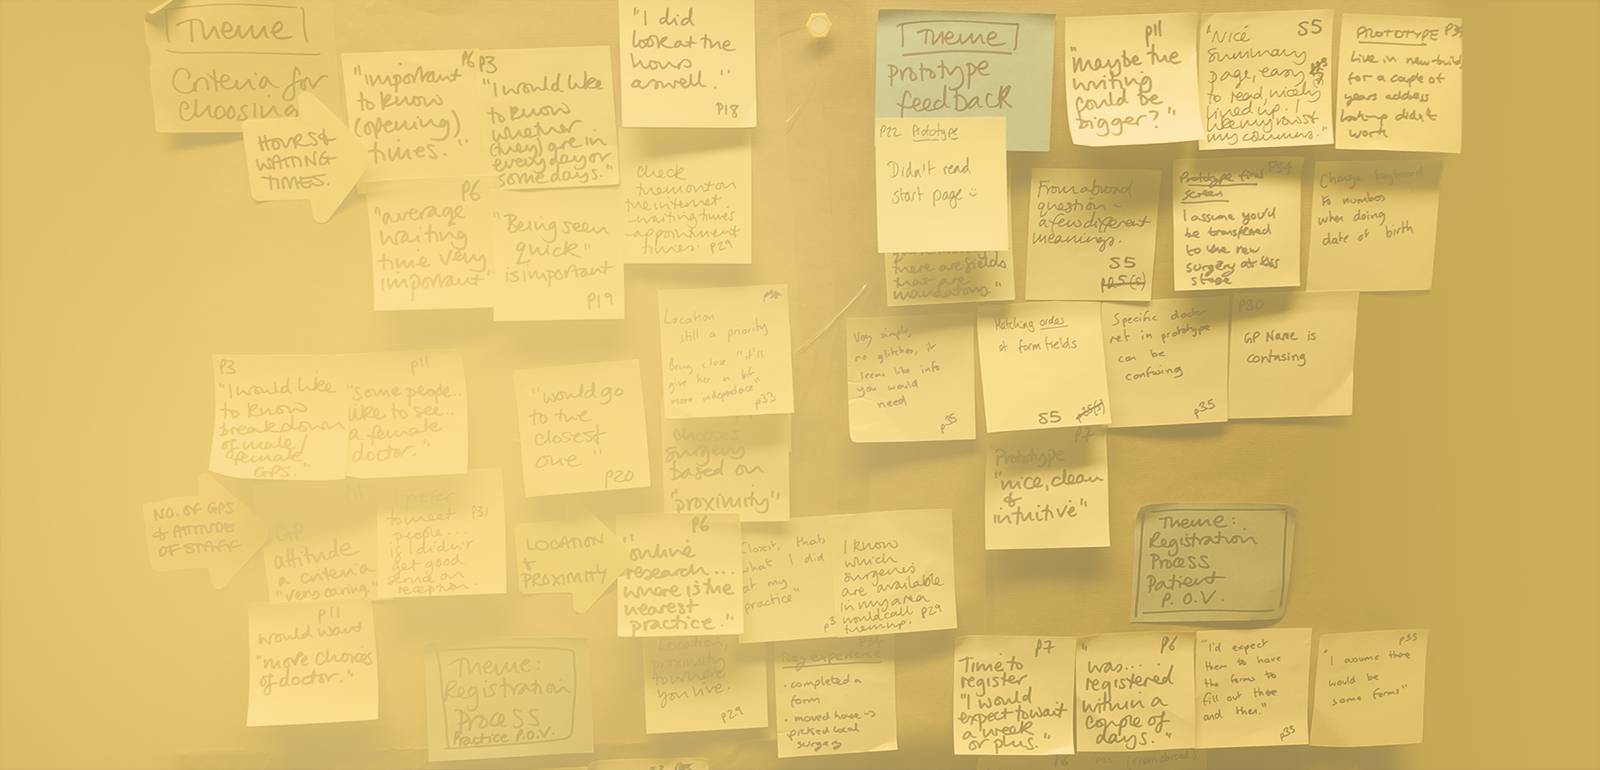 Theme
Criteria for
choosing
HOURS &
WAITING
TIMES.
P6
"important
to know
(opening)
times."
P3
"I would like
to know
whether
(they) are in
everyday or
some days."
"I did
look at the
hours
aswell."
P18
P6
"average
waiting
time very
important"
"Being seen
quick"
is important
P19
check
them on
the internet
-waiting times
-appointment
times. P29
P3
"I would like
to know
breakdown
of male/
female
GPs."
P11
"some people..
like to see...
a female
doctor."
"would go
to the
closest
one"
P20
Location
still a priority
Being close "it'll
give her a bit
more independence"
p33
chooses
surgery
based on
"proximity"
NO. OF GPS
& ATTITUDE
OF STAFF
GP
attitude
a criteria
"very caring"
P31
prefer
to meet
people...
if I didn't
get good
service on
reception.
LOCATION
&
PROXIMITY
P6
"online
research...
where is the
nearest
practice."
Closest, that's
what I did
at my
practice"
p3
I know
which
surgeries
are available
in my area
would call
them up. P29
P11
would want
"more choices
of doctor."
Theme:
Registration
Process
Practice P.O.V.
Location,
proximity
to where
you live.
P29
Reg experience
• completed a
form
• moved house ->
picked local
surgery
Theme
Prototype
feedback
P11
"maybe the
writing
could be
bigger?"
S5
"Nice
summary
page, easy
to read, nicely
lined up. I
my columns."
PROTOTYPE
Live in new-build
for a couple of
years address
look-up didn't
work
P22 Prototype
Didn't read
start page
there are fields
that are
mandatory."
From abroad
question -
a few different
meanings.
S5
Prototype first
screen
P34
I assume you'd
be transferred
to the new
surgery at this
stage
Change keyboard
to numbers
when doing
date of birth
Very simple,
no glitches, it
seems like info
you would
need
p35
Matching order
of form fields
S5
Specific doctor
not in prototype
can be
confusing
p35
P30
GP Name is
confusing
P7
Prototype
"nice, clean
&
intuitive"
Theme:
Registration
Process
Patient
P.O.V.
P7
Time to
register
"I would
expect to wait
a week
or plus."
P6
"was...
registered
within a
couple of
days."
"I'd expect
them to have
the forms to
fill out there
and then."
p35
p35
"I assume there
would be
some forms"